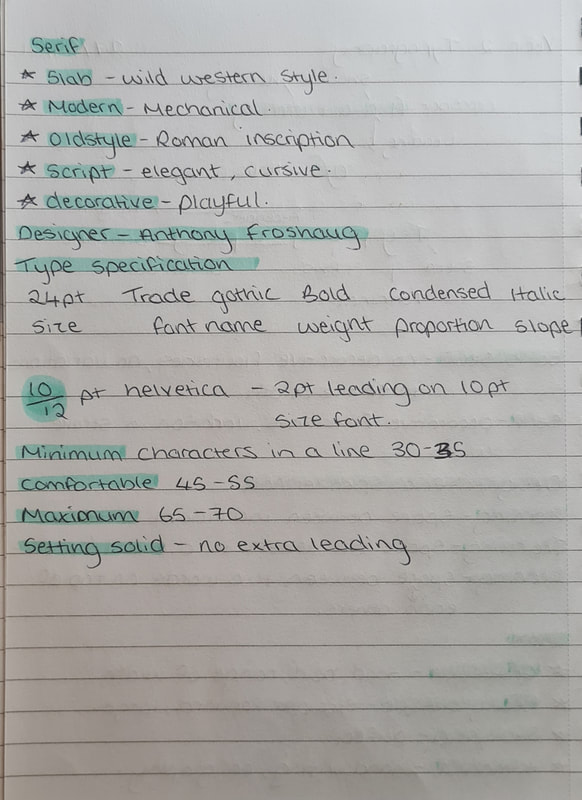 Serif
★ Slab - wild western style.
★ Modern - Mechanical.
★ Oldstyle - Roman inscription
★ script - elegant, cursive.
★ decorative - playful.
Designer - Anthony Froshaug
Type specification
24pt Trade gothic Bold condensed Italic
size font name weight proportion slope
10/12 pt helvetica - 2pt leading on 10pt
size font.
Minimum characters in a line 30-35
comfortable 45-55
Maximum 65-70
Setting solid - no extra leading